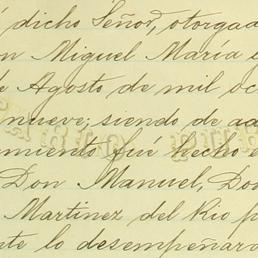 dicho Señor, otorgad
n Miguel María
e Agosto de mil oc
nueve; siendo de ad
miento fué hecho e
Don Manuel, Do
Martinez del Rio p
te lo desempeñar